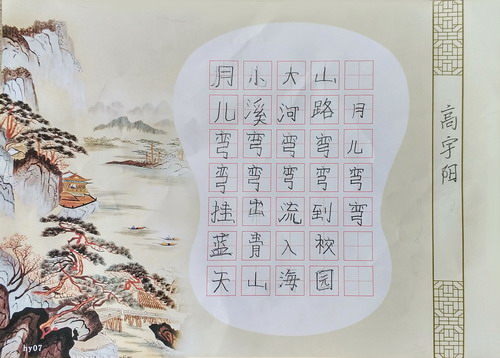 月儿弯弯
山路弯弯到校园
大河弯弯流入海
小溪弯弯出青山
月儿弯弯挂蓝天
高宇阳
hy07